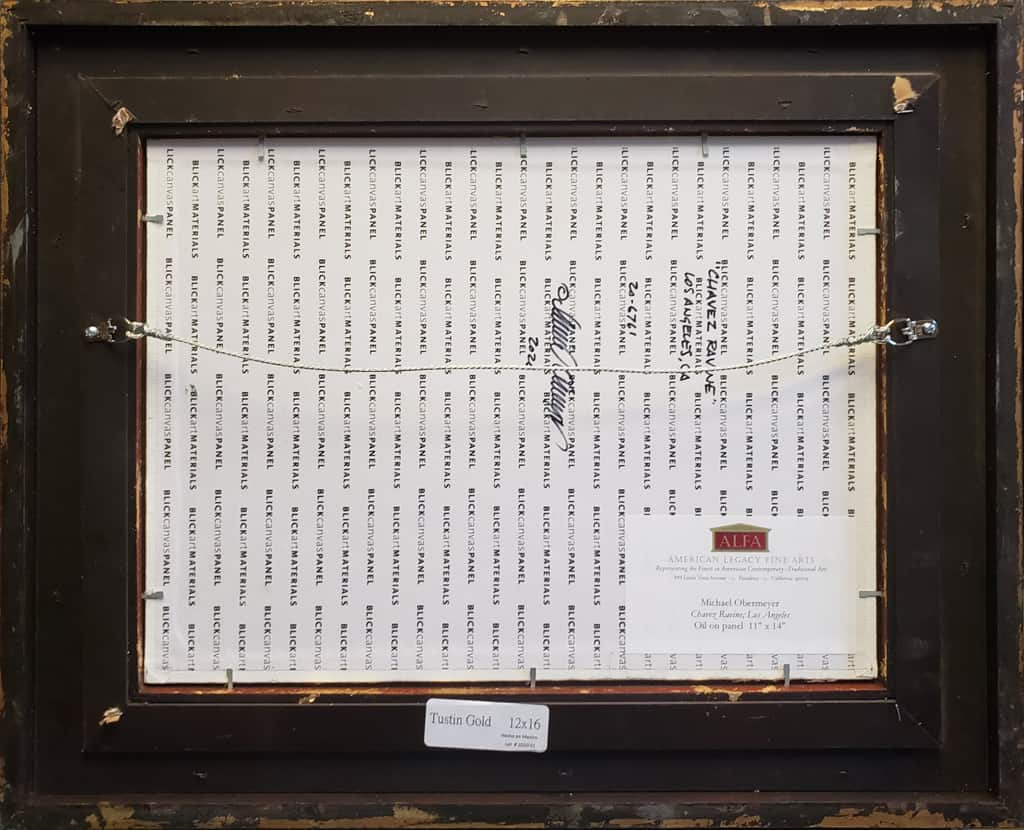 BLICKartMATERIALS BLICKcanvasPANEL
"CHAVEZ RAVINE"
LOS ANGELES, CA
20-6761
2021
ALFA
AMERICAN LEGACY FINE ARTS
Representing the Finest in American Contemporary-Traditional Art
Pasadena California
Michael Obermeyer
Chavez Ravine; Los Angeles
Oil on panel 11" x 14"
Tustin Gold 12x16
Hecho en Mexico